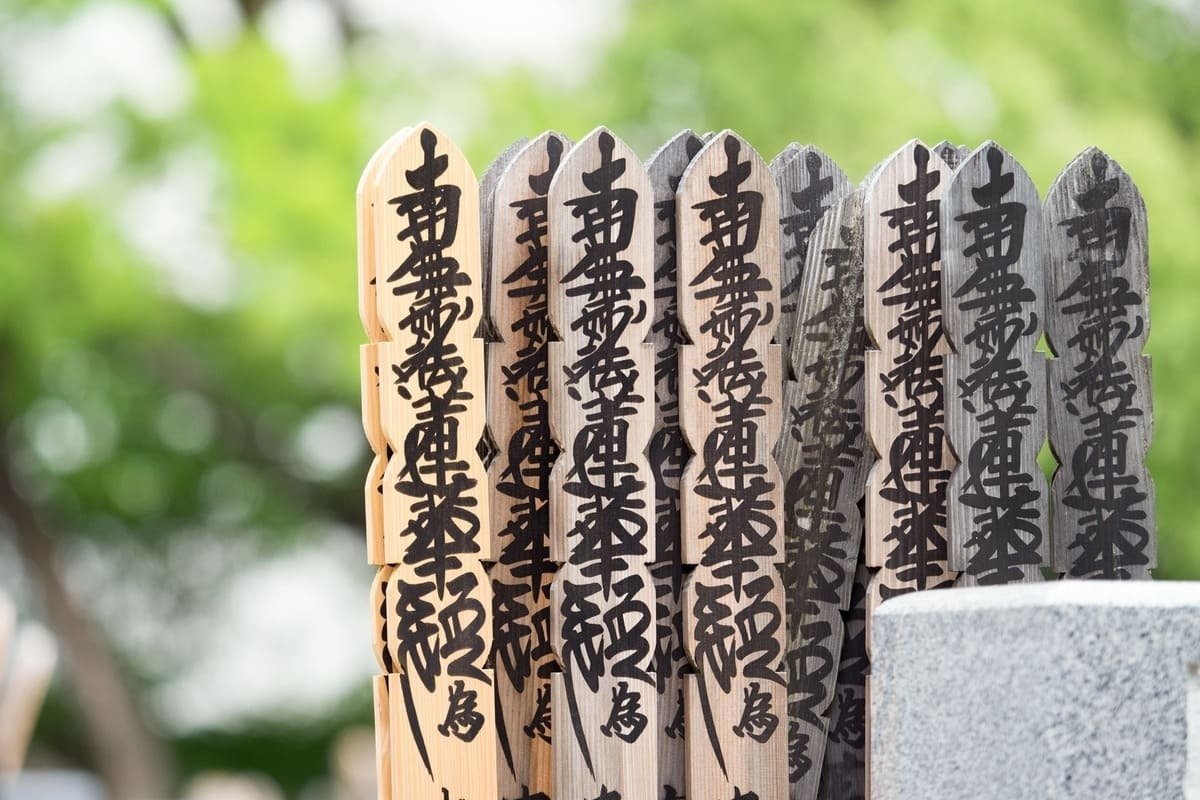 南無妙法蓮華経為
南無妙法蓮華経為
南無妙法蓮華経為
南無妙法蓮華経為
南無妙法蓮華
南無妙法蓮華
南無妙法蓮華